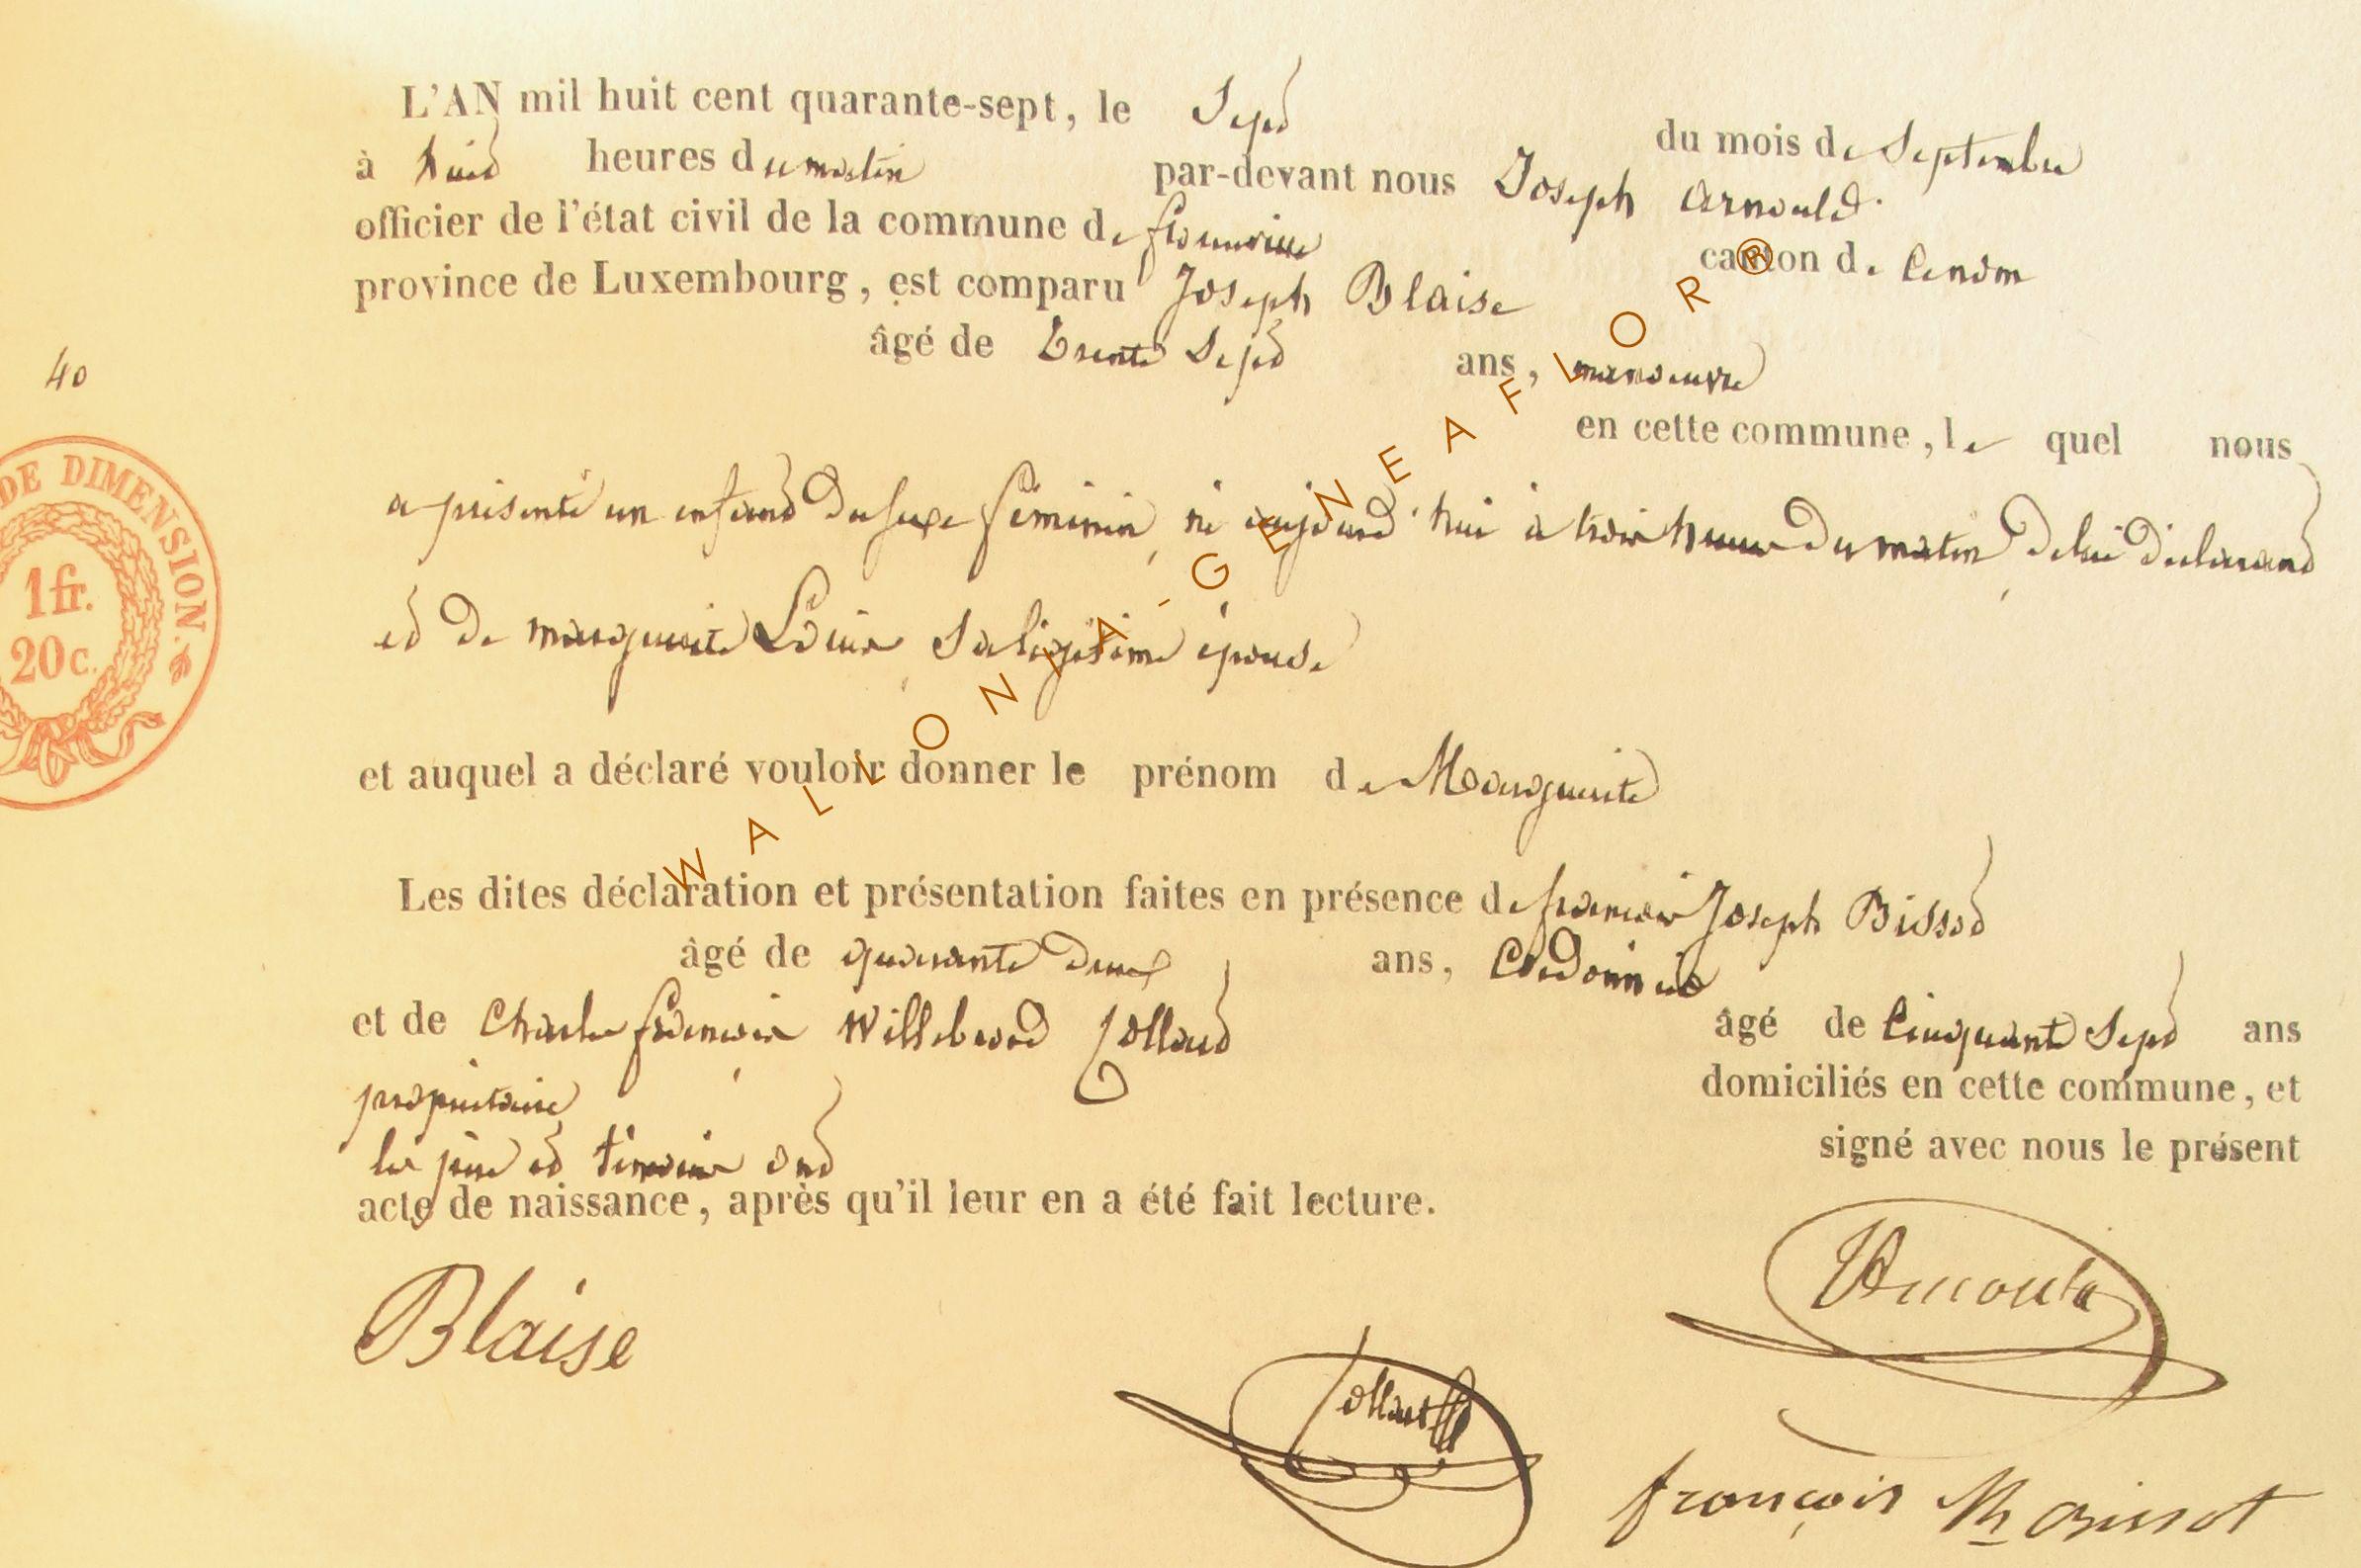 L'AN mil huit cent quarante-sept, le Sept du mois de Septembre
à huit heures du matin par-devant nous Joseph Arnould
officier de l'état civil de la commune de canton de
province de Luxembourg, est comparu Joseph Blaise
âgé de trente Sept ans, manoeuvre
en cette commune, le quel nous
a présenté un enfant du sexe féminin, né aujourd'hui à trois heures du matin, de lui déclarant
et de marguerite Louis, Sa ligitime épouse
et auquel a déclaré vouloir donner le prénom de Marguerite
Les dites déclaration et présentation faites en présence de françois Joseph Bissot
âgé de quarante deux ans, Cordonnier
et de Charles françois Willebrord Jollard âgé de Cinquante Sept ans
propriétaire domiciliés en cette commune, et
les père et témoins ont signé avec nous le présent
acte de naissance, après qu'il leur en a été fait lecture.
40
DE DIMENSION.
1fr.
20c.
Blaise
françois
WALLONIA-GENEAFLOR®